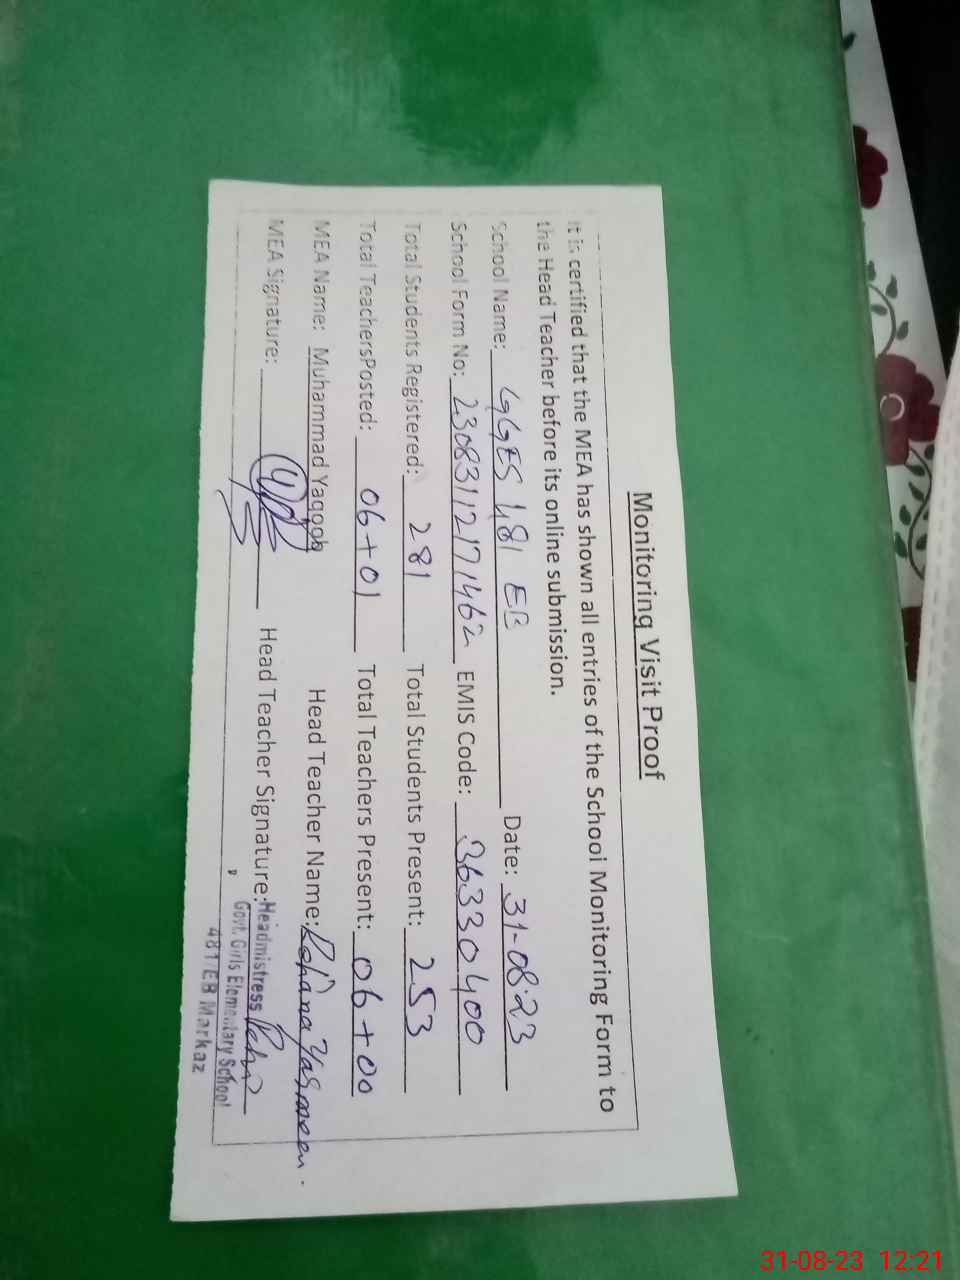 Monitoring Visit Proof
It is certified that the MEA has shown all entries of the School Monitoring Form to
the Head Teacher before its online submission.
School Name: GGES 481 EB Date: 31-08-23
School Form No: 23083112171462 EMIS Code: 36330400
Total Students Registered: 281 Total Students Present: 253
Total TeachersPosted: 06+01 Total Teachers Present: 06+00
MEA Name: Muhammad Yaqoob Head Teacher Name: Rehana Yasmeen.
MEA Signature: Head Teacher Signature:
Headmistress
Govt. Girls Elementary School
481 EB Markaz
31-08-23 12:21